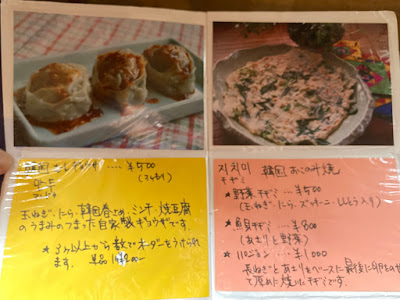 韓国 ‥‥ ¥500
(3ケ入り)
玉ねぎ、にら、韓国春さめ、ミンチ、焼豆腐
のうまみのつまった自家製ギョウザです。
* 3ケ以上から数でオーダーをうけられ
ます。単品
지치미 韓国おこのみ焼
チヂミ
* 野菜チヂミ ‥‥ ¥500
(玉ねぎ、にら、ズッキーニ、ししとう入り)
* 貝チヂミ ‥‥ ¥800
(あさりと野菜)
* パジョン ‥‥ ¥1,000
長ねぎとあさりをベースに最後に卵をのせ
て厚めに焼いたチヂミです。